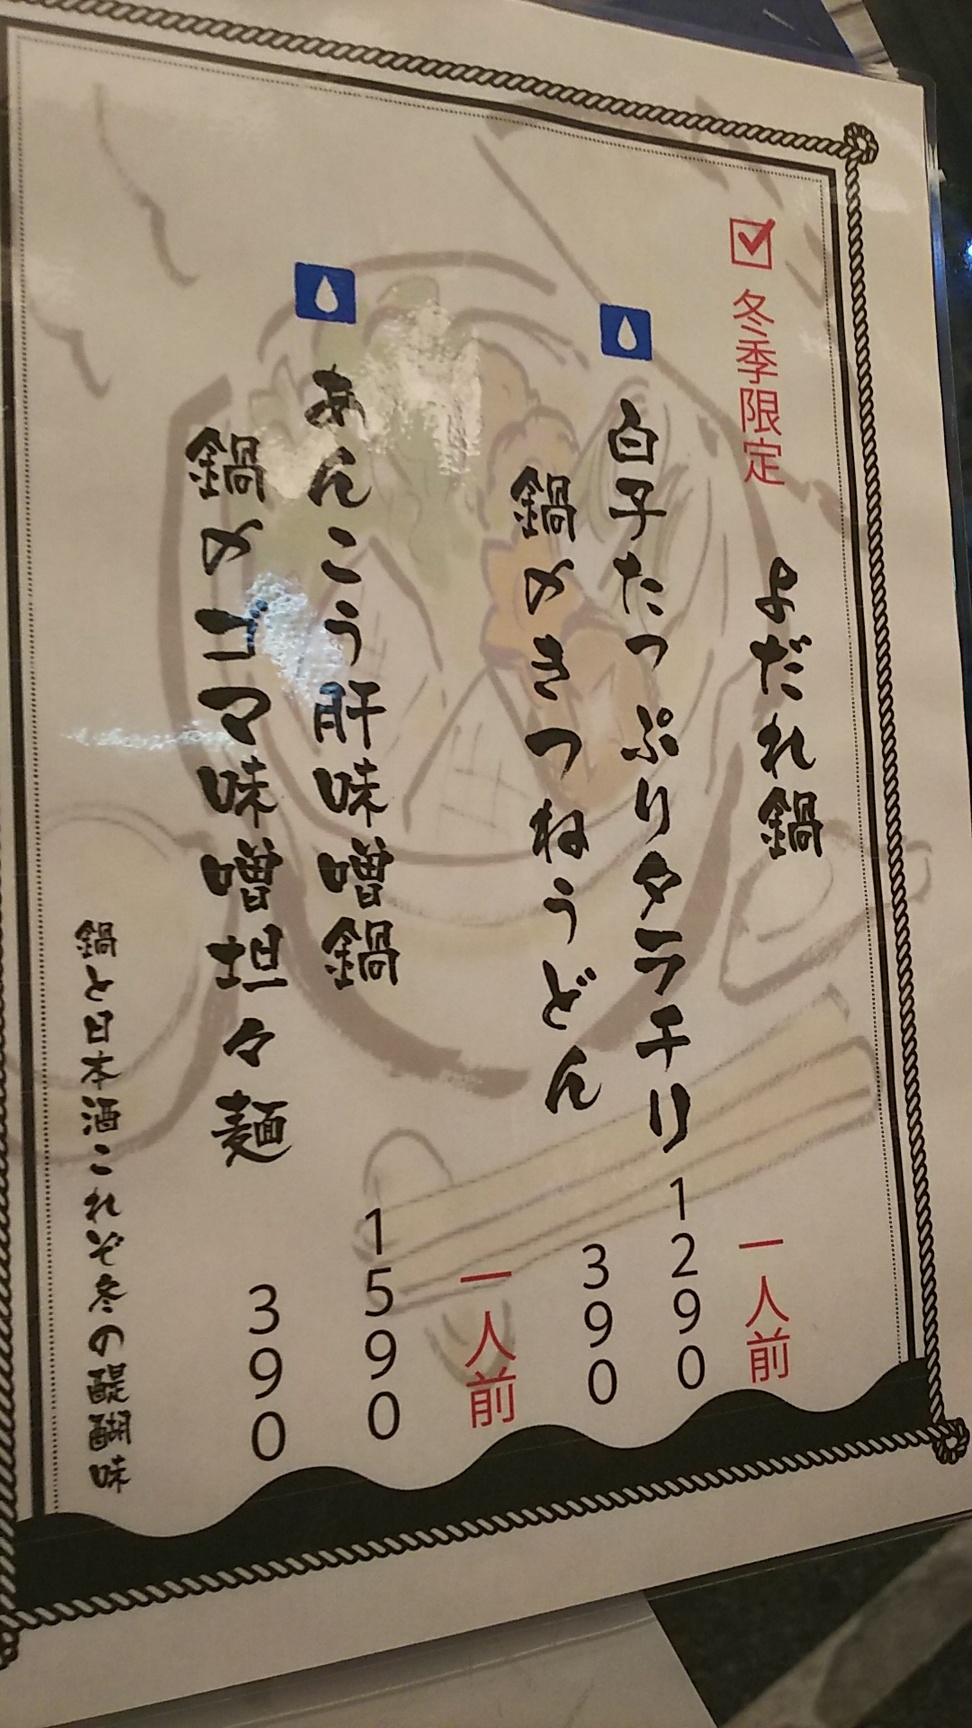 冬季限定 よだれ鍋
一人前
白子たっぷりタラチリ 1290
鍋〆きつねうどん 390
一人前
あんこう肝味噌鍋 1590
鍋〆ゴマ味噌坦々麺 390
鍋と日本酒これぞ冬の醍醐味